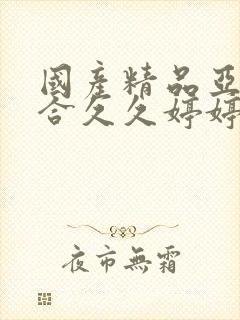 國產精品亞
合久久婷婷
夜市無霜